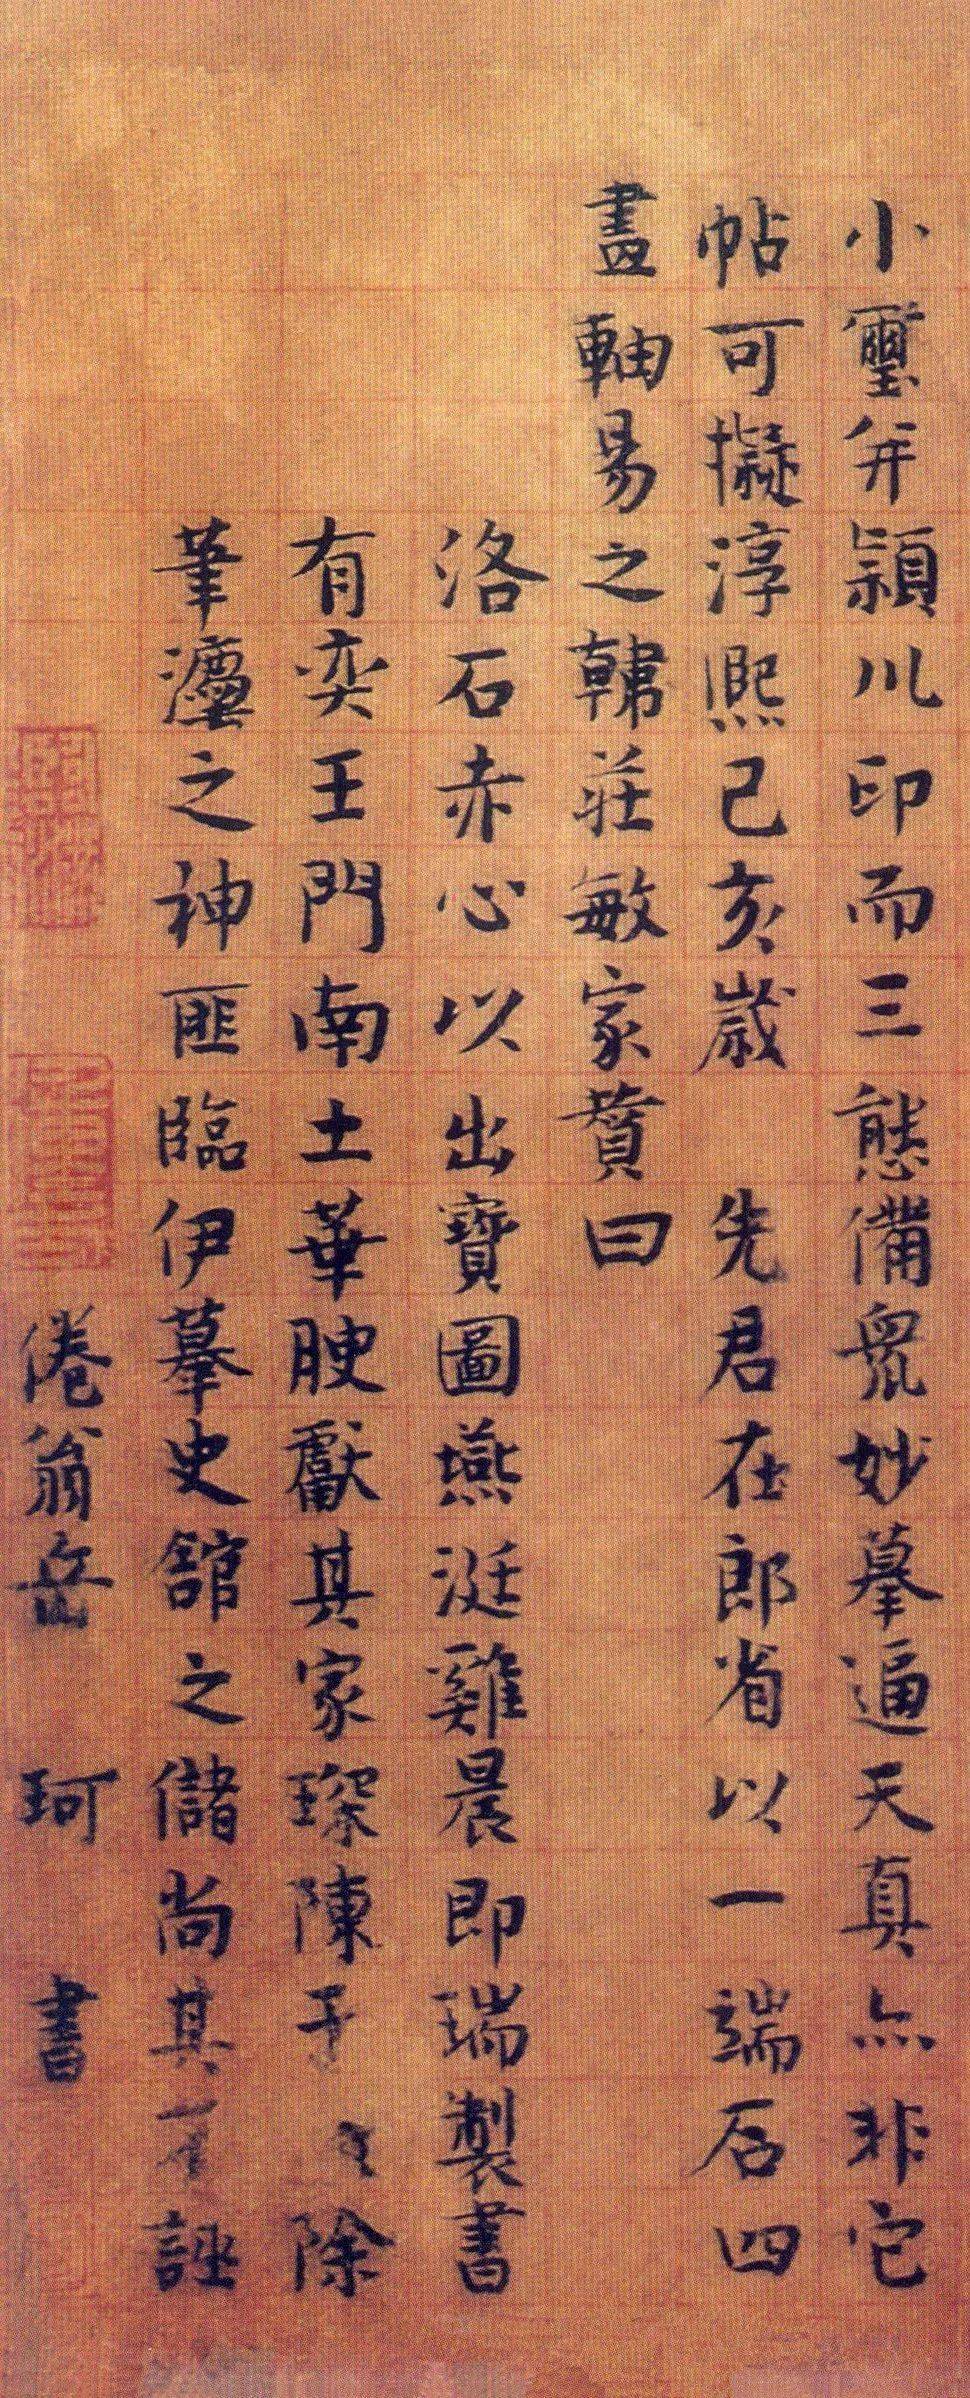 小璽并潁川印而三態備眾妙摹逼天真亦非它
帖可擬淳熙己亥歲 先君在郎省以一端石四
畫軸易之韓莊敏家贊曰
洛石赤心以出寶圖燕涎雞晨即瑞製書
有奕王門南土華腴獻其家琛陳于 除
筆灋之神匪臨伊摹史館之儲尚其 誣
倦翁岳 珂 書